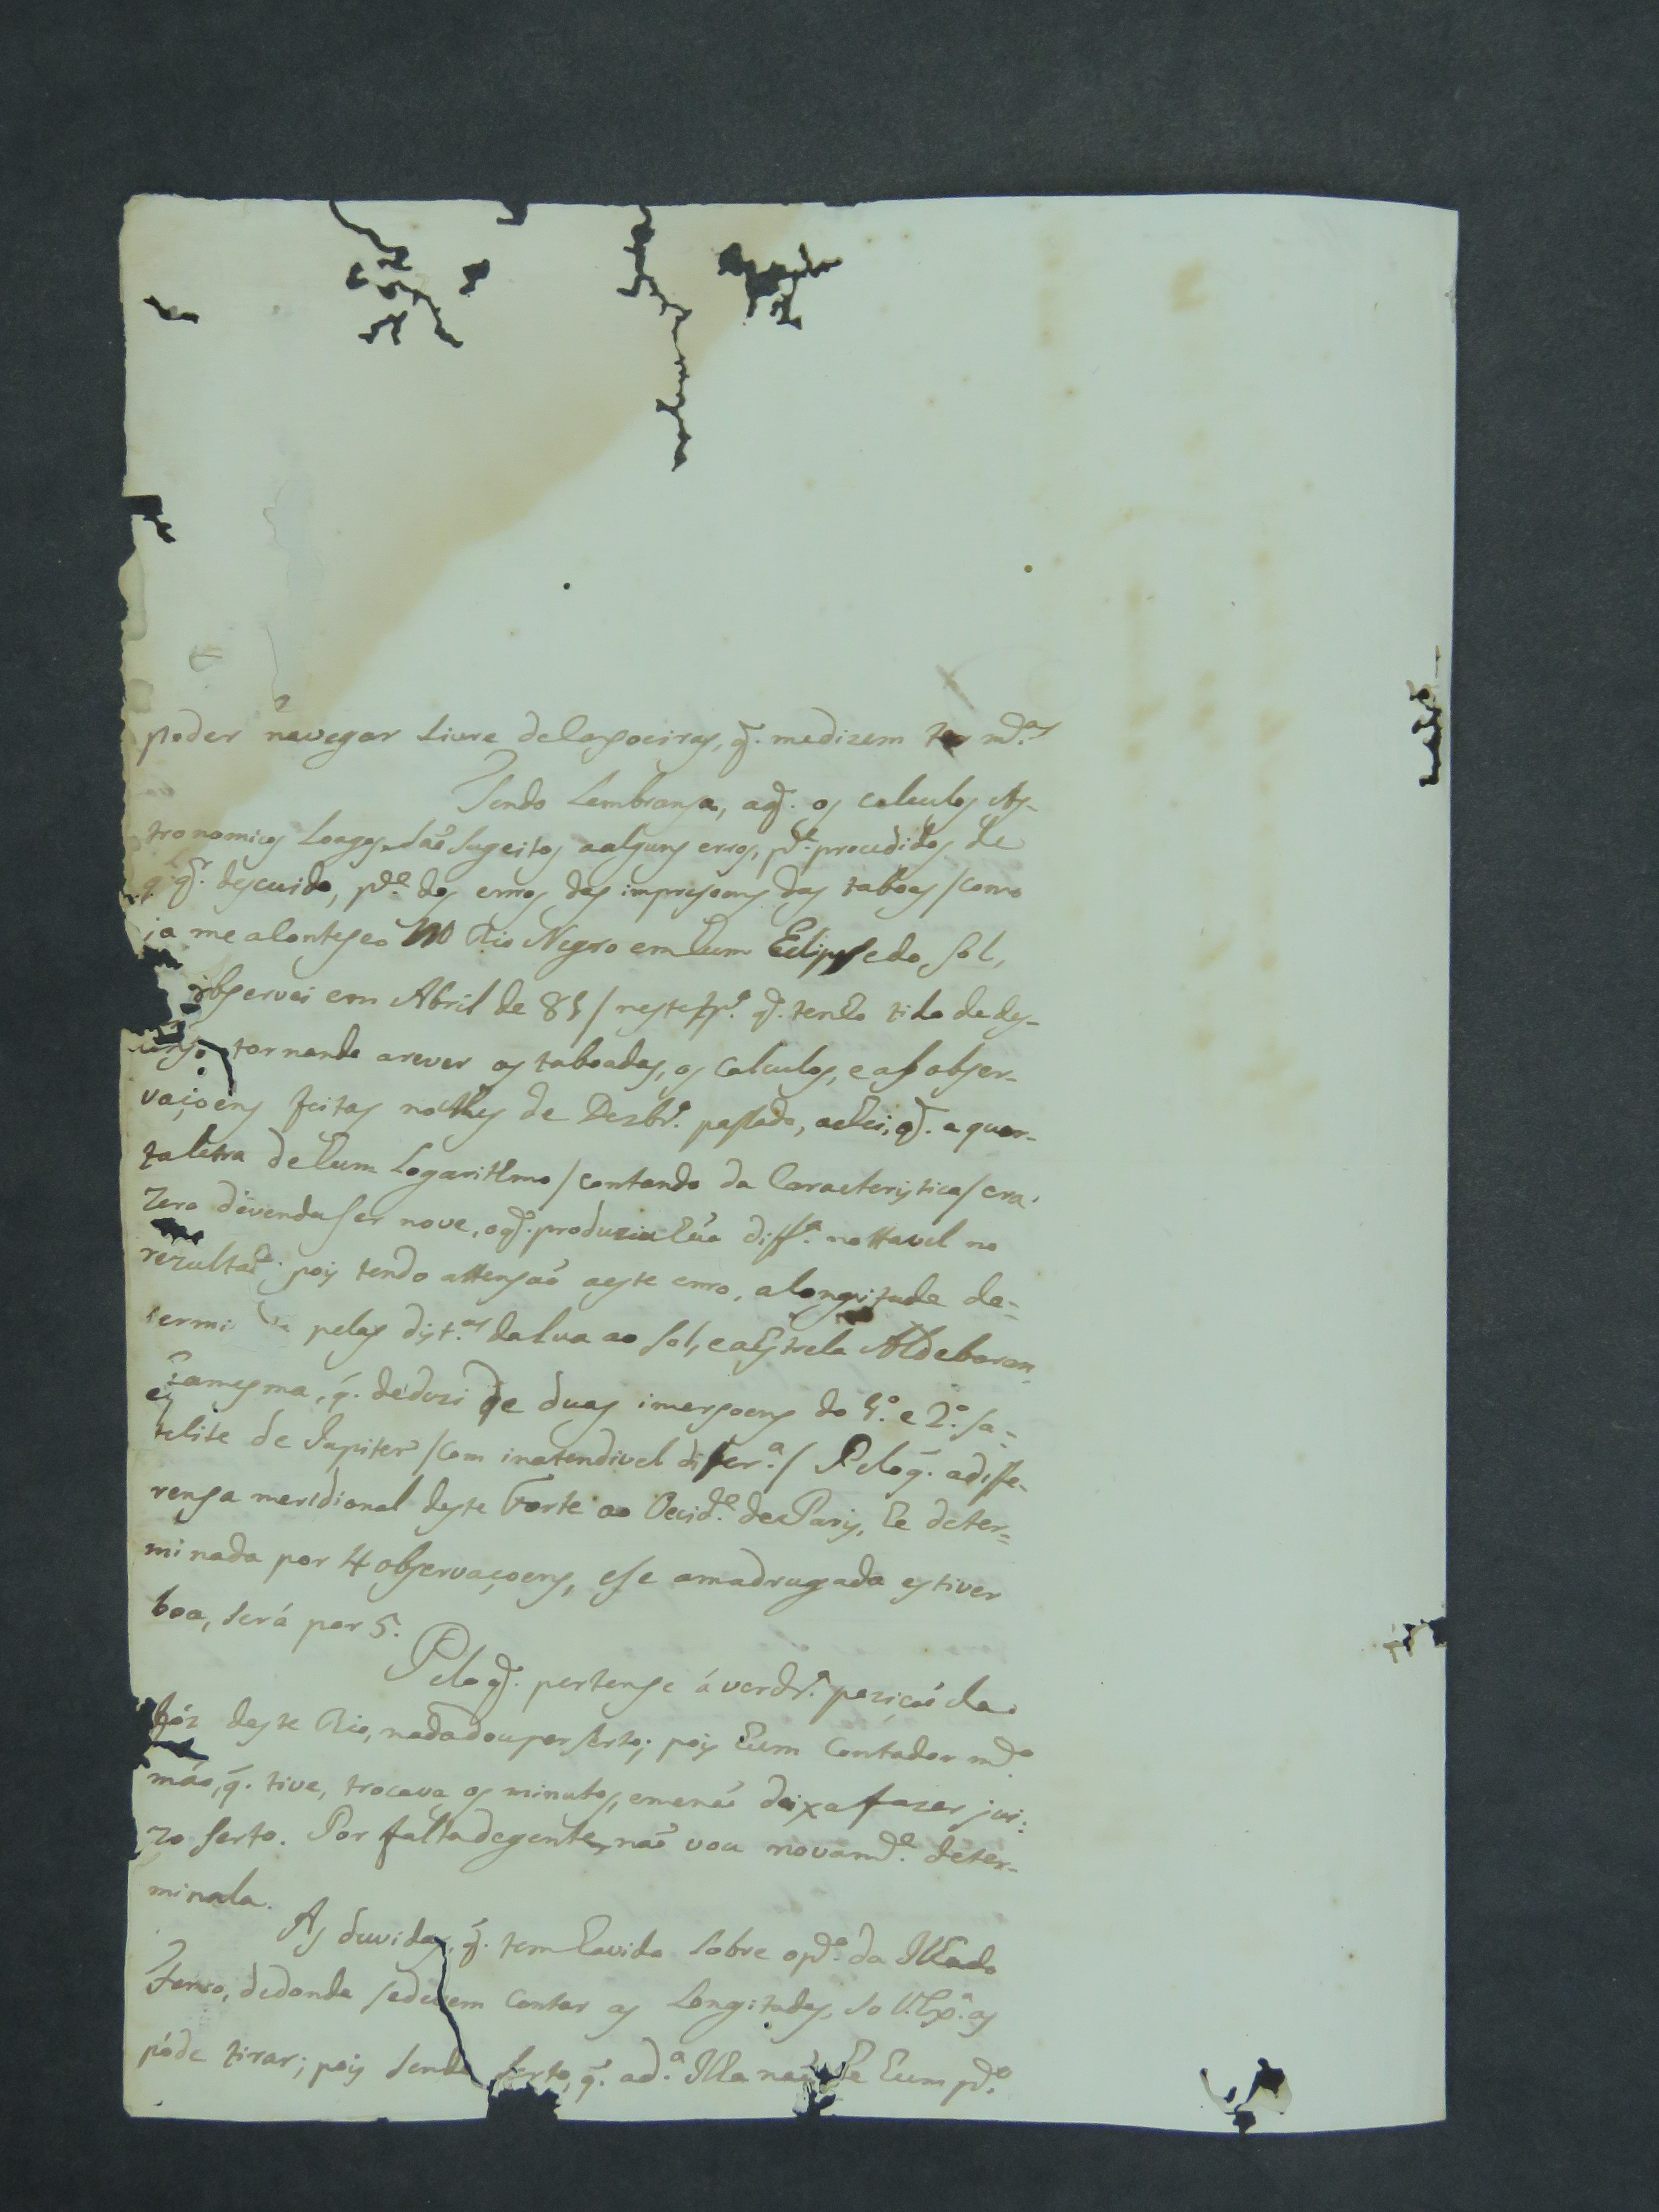 poder navegar livre de Caxoeiras, q̃. me dizem ter m.^tas
Tendo Lembransa, a q̃. os calculos As-
tronomicos Longos, são sugeitos a alguns erros, p.^e procedidos de
q.^l q̃.^r descuido, p.^e dos erros das impresoens das taboas /como
ja me aconteseo no Rio Negro em hum Eclipse do Sol,
observei em Abril de 81 / neste
tornando a rever as taboadas, os calculos, e as obser-
vaçoens feitas no Mes de Dezbr.º passado, achei, q̃. a quar-
ta letra de hum Logarithmo /contando da Caracteristica/ era
zero devendo ser nove, o q̃. produzia hũa diff.ª nottavel no
rezultado; pois tendo attensaõ a este erro, a longitude de-
termi da pelas dist.^as da lua ao Sol, e a Estrela Aldebaran
a mesma, q̃. deduzi de duas imersoens do 1.º e 2.º Sa-
telite de Jupiter /com inatendivel difer.ª/ Pelo q̃. a dife-
rensa meridional deste Forte ao Ocid.^e de Paris, he deter-
minada por 4 observaçoens, e se a madrugada estiver
boa, será por 5.
Pelo q̃. pertense á verdr.ª pozição da
fóz deste Rio, nada dou por serto; pois hum Contador m.^to
máo, q̃. tive, trocava os minutos, e me naõ deixa fazer jui-
zo serto. Por falta de gente, naõ vou novam.^e deter-
minala.
As duvidas, q̃. tem havido sobre o p.^to da Ilha do
Ferro, de donde se devem contar as Longitudes, so V. Ex.ª as
póde tirar; pois sendo serto, q̃. a d.ª Ilha naõ he hum p.^to